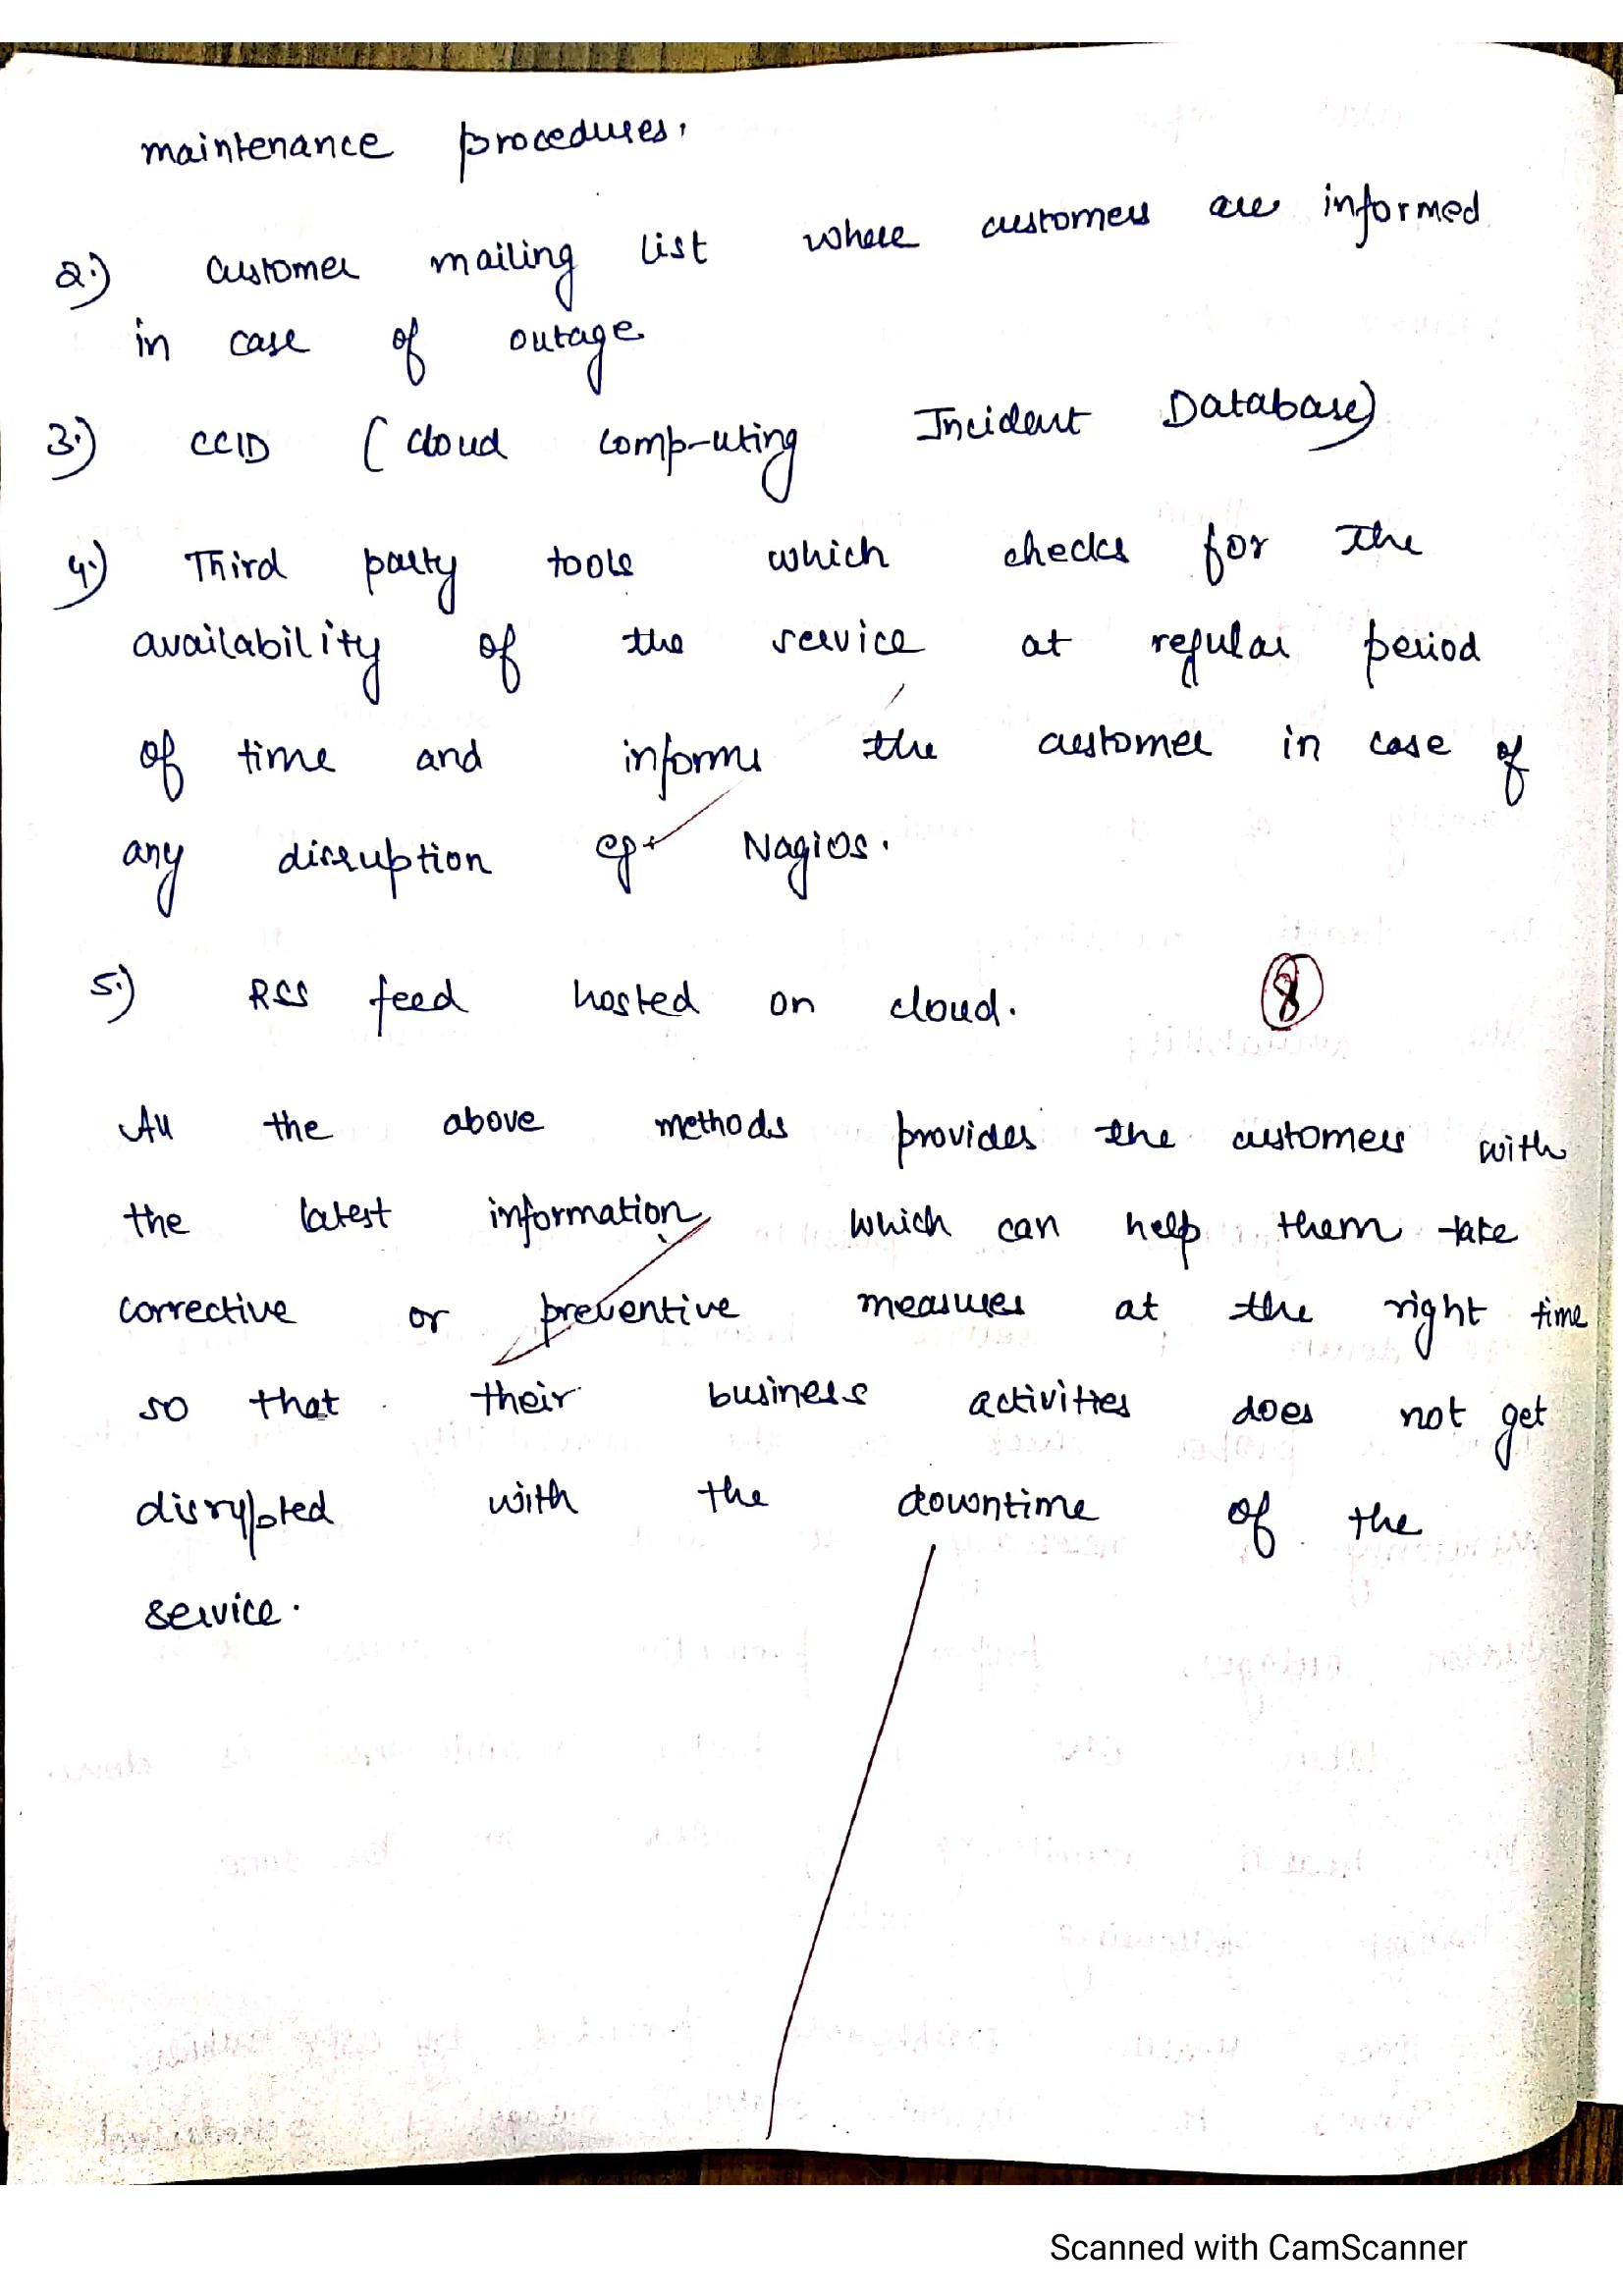 maintenance procedures.
2.) Customer mailing list where customers are informed
in case of outage
3.) CCID (cloud comp-uting Incident Database)
4.) Third party tools which checks for the
availability of the service at regular period
of time and informs the customer in case of
any disruption eg. Nagios.
5.) RSS feed hosted on cloud.
8
All the above methods provides the customers with
the latest information, which can help them take
corrective or preventive measures at the right time
so that their business activities does not get
disrupted with the downtime of the
service.
Scanned with CamScanner